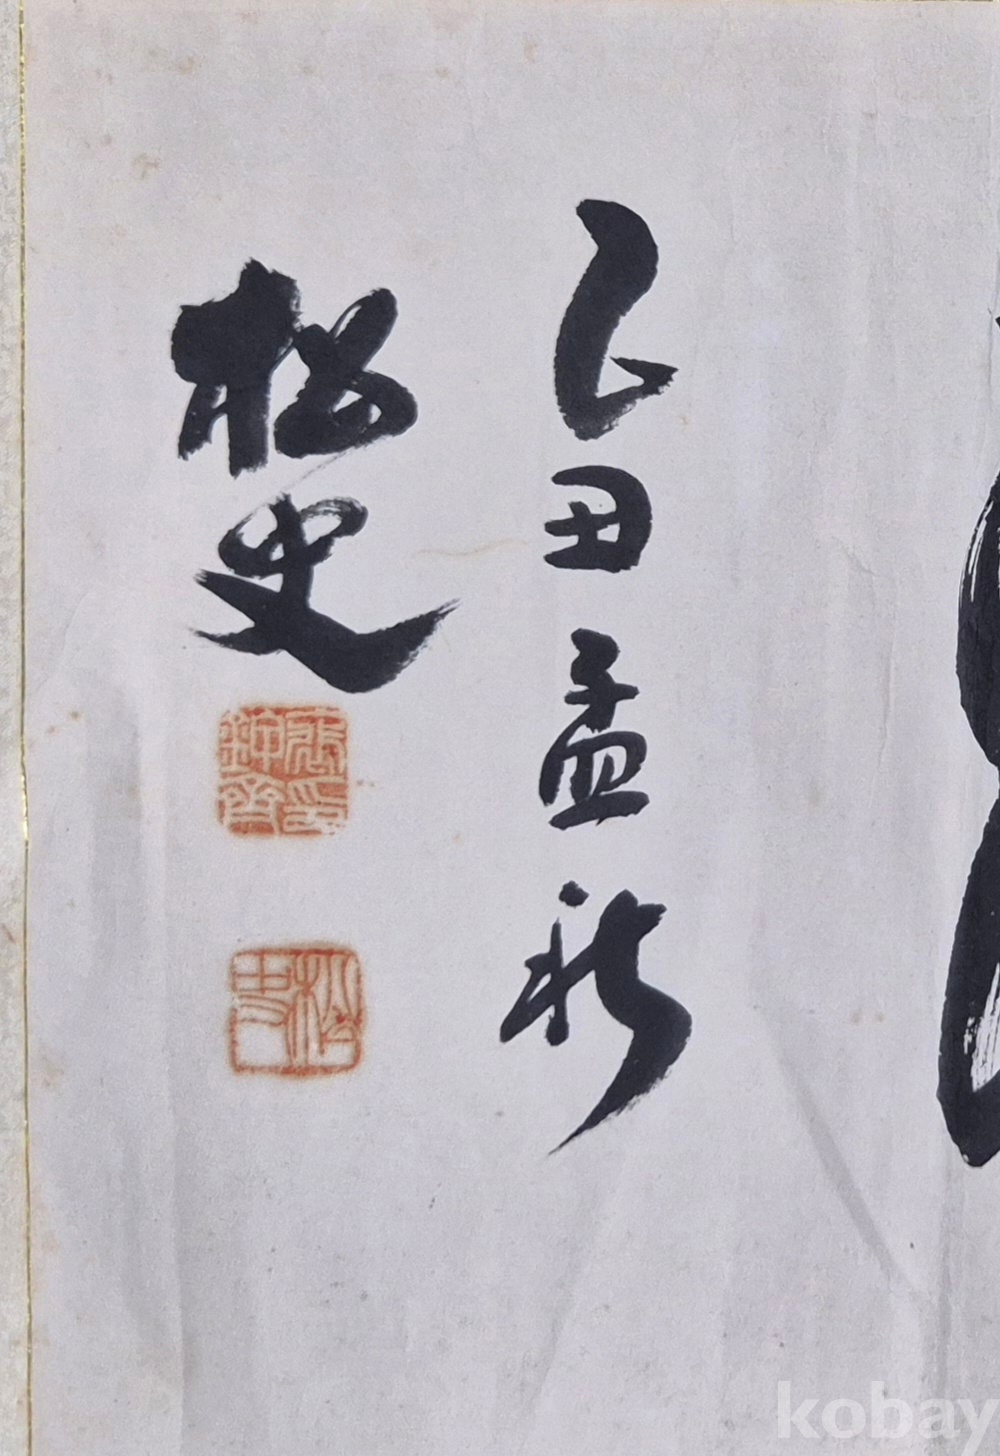 乙丑孟秋
松史
松史
kobay